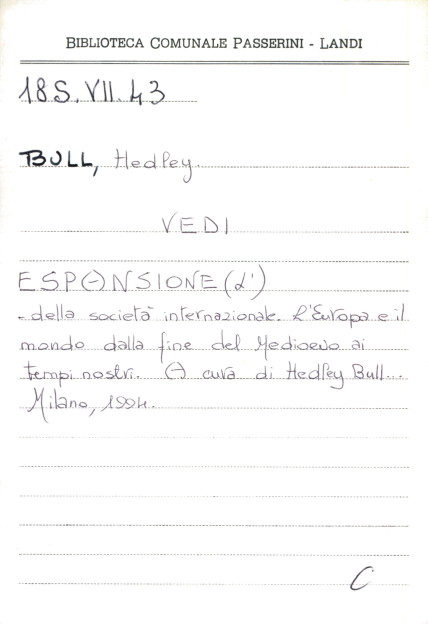 BIBLIOTECA COMUNALE PASSERINI - LANDI
18S.VII.43
BULL, Hedley.
VEDI
ESPANSIONE (L')
- della società internazionale. L'Europa e il
mondo dalla fine del Medioevo ai
tempi nostri. A cura di Hedley Bull...
Milano, 1994.
C